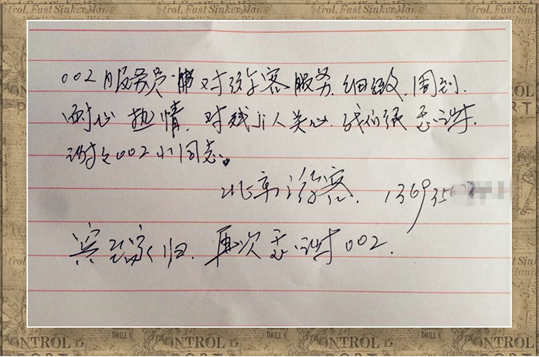 rol, Fast Sinker Mar.
002服务员 对旅客服务. 细致. 周到.
耐心 热情. 对残疾人关心. 我们很感谢.
谢谢002小同志。
北京游客. 136935
宾至家归. 再次感谢002.
ONTROL